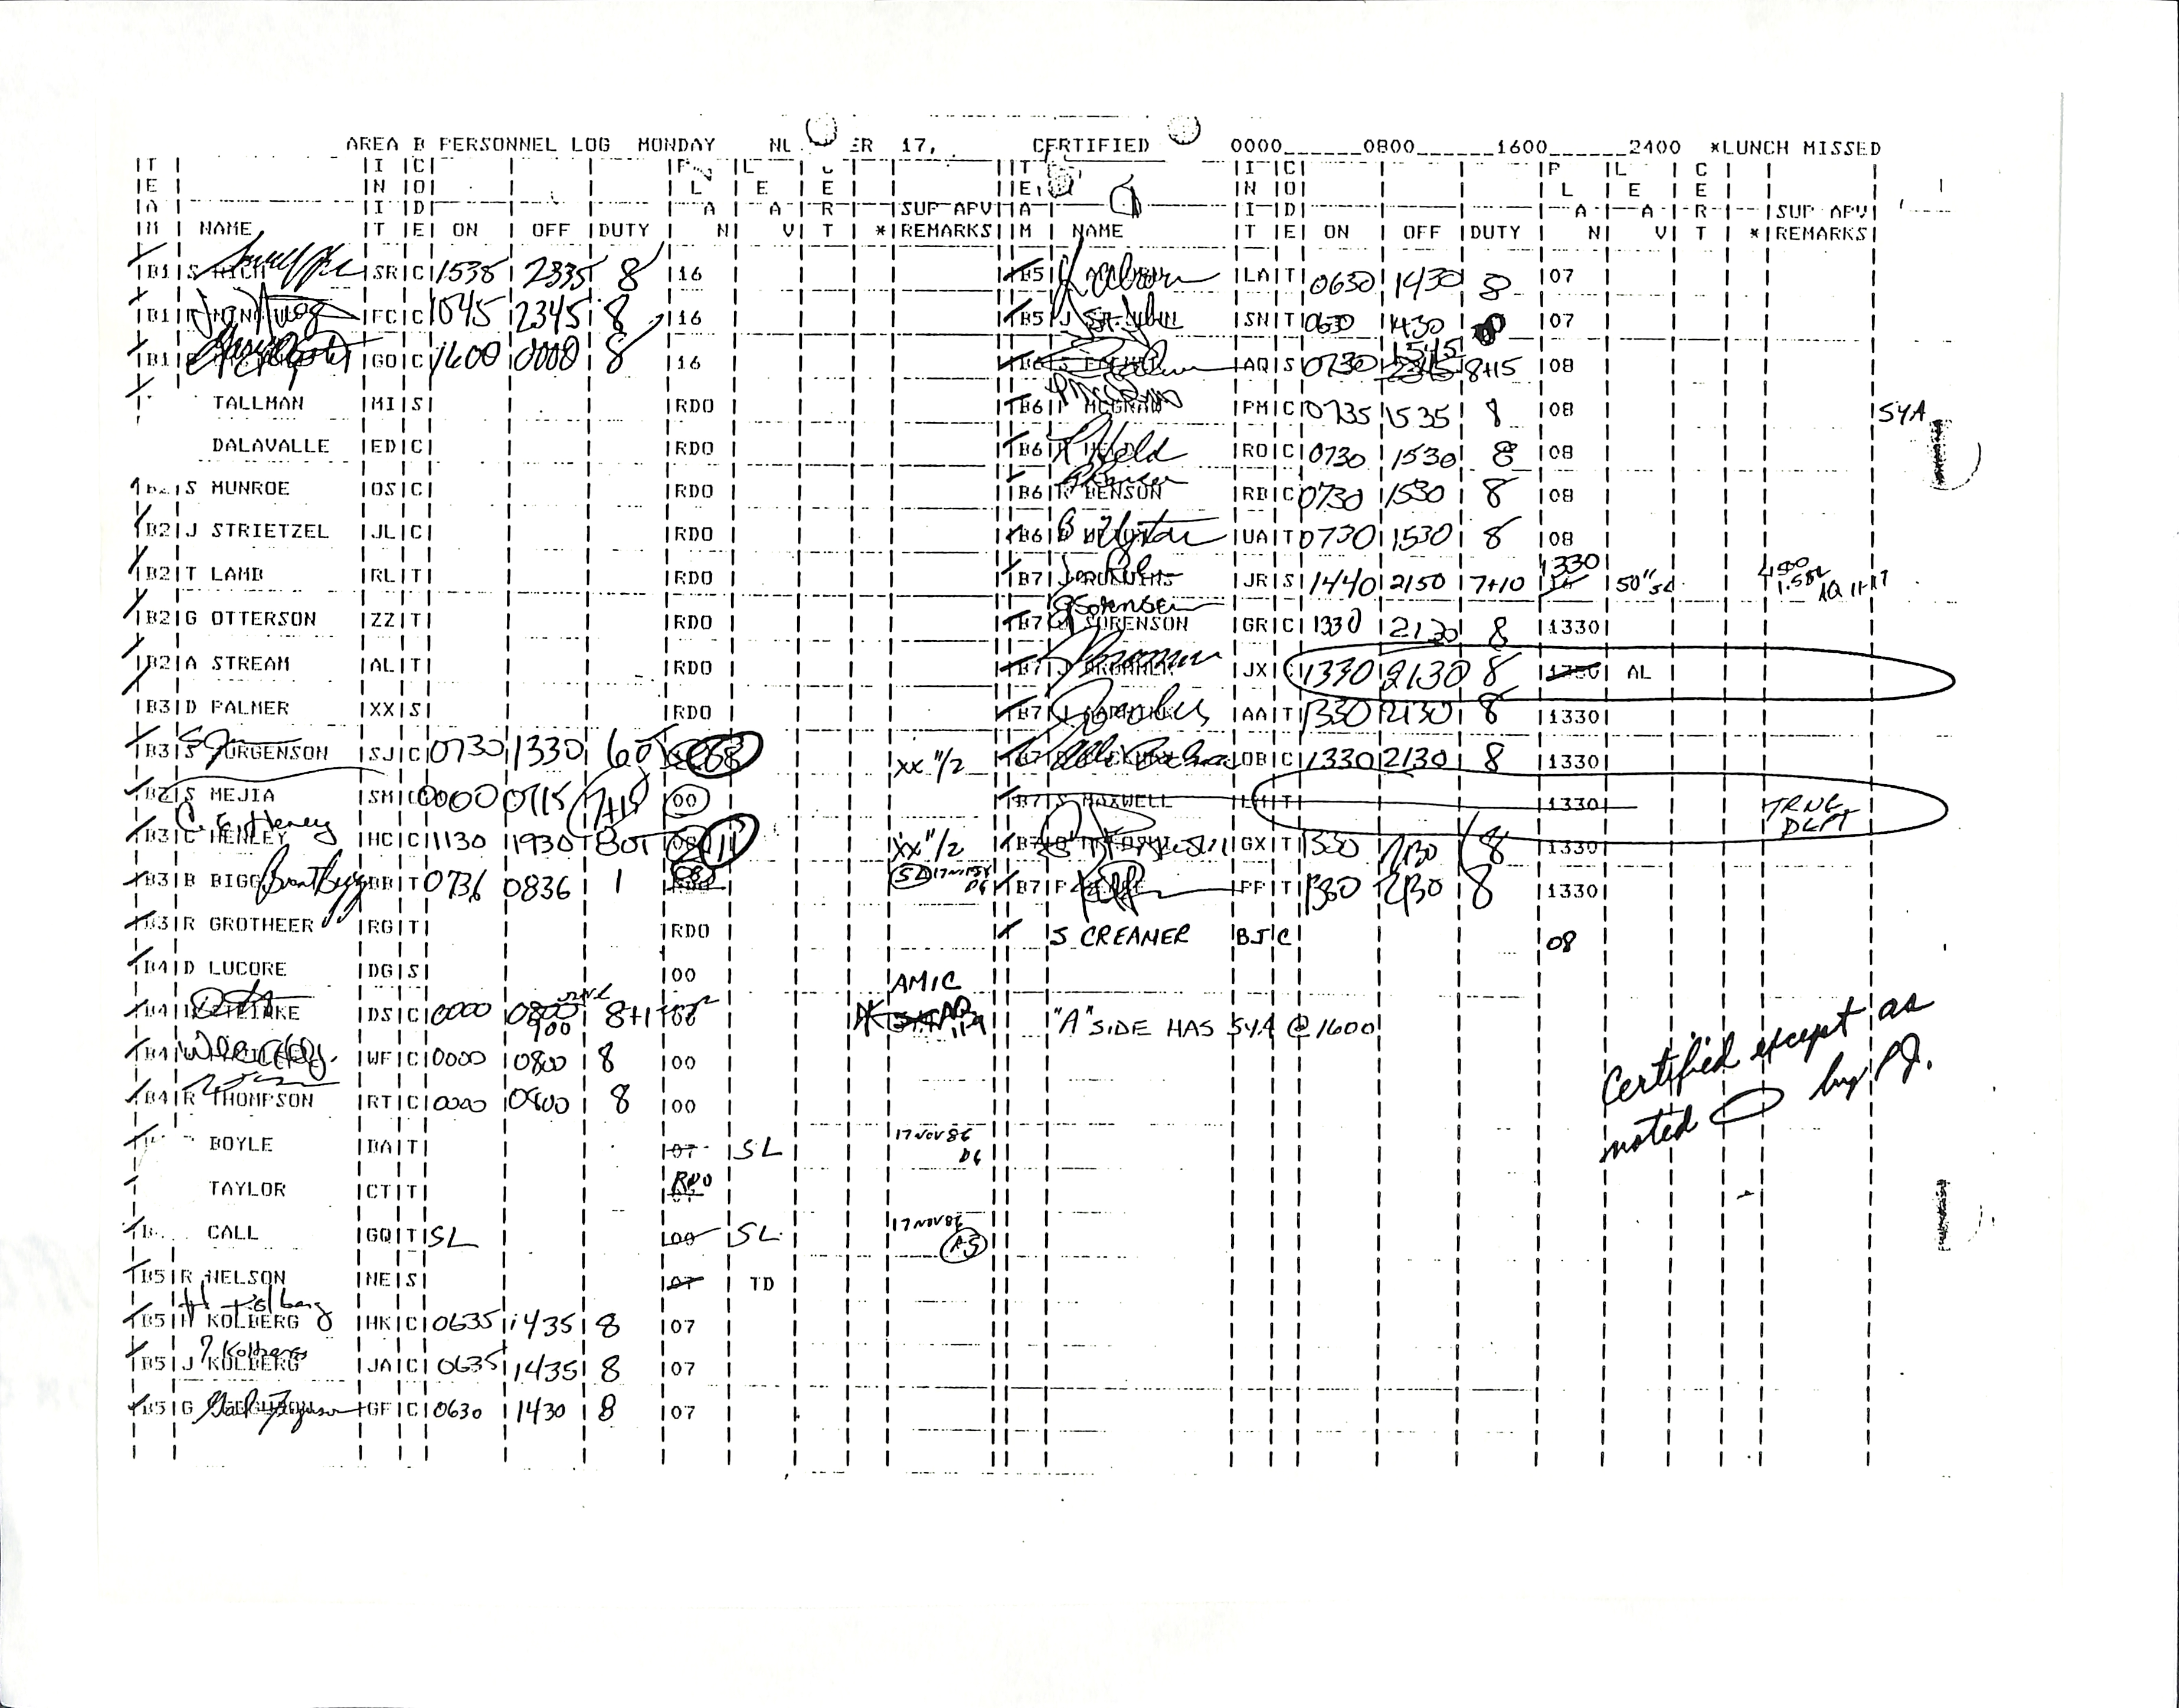 AREA B PERSONNEL LOG MONDAY ER 17, CERTIFIED 0000______0800______1600______2400 *LUNCH MISSED
TEAM NAME INIT CODE ON OFF DUTY PLAN LEAV CERT * SUP APV REMARKS
B1 S RICH SR C 1535 2335 8 16
B1 FC C 2345 8 16
B1 GO C 1600 0000 8 16
TALLMAN MI S RDO
DALAVALLE ED C RDO
B2 S MUNROE OS C RDO
B2 J STRIETZEL JL C RDO
B2 T LAMB RL T RDO
B2 G OTTERSON ZZ T RDO
B2 A STREAM AL T RDO
B3 D PALMER XX S RDO
B3 S JURGENSON SJ C 0730 1330 6OT 08 XX 11/2
B2 S MEJIA SM C 0000 0715 7+15 00
B3 C HENLEY HC C 1130 1930 8OT 11 XX 11/2
B3 B BIGG BB T 0736 0836 1 SL
B3 R GROTHEER RG T RDO
B4 D LUCORE DG S 00 AMIC
B4 DS C 0000 0800 900 8+1 00
B4 WF C 0000 0800 8 00
B4 R THOMPSON RT C 0000 0800 8 00
BOYLE BA T 07 SL 17 NOV 86 DG
TAYLOR CT T RDO
CALL GQ T SL 00 SL 17 NOV 86
B5 R NELSON NE S 07 TD
B5 H KOLBERG HK C 0635 1435 8 07
B5 J KOLBERG JA C 0635 1435 8 07
B5 G GF C 0630 1430 8 07
TEAM NAME INIT CODE ON OFF DUTY PLAN LEAV CERT * SUP APV REMARKS
B5 LA T 0630 1430 8 07
B5 J SN T 0630 1430 07
B6 AQ S 0730 1545 8+15 08
B6 P MCGRAW PM C 0735 1535 8 08 SYA
B6 R Held RO C 0730 1530 8 08
B6 R BENSON RB C 0730 1530 8 08
B6 UA T 0730 1530 8 08
B7 JR S 1440 2150 7+10 1330 50" SL AQ 11-17
B7 G SORENSON GR C 1330 2130 8 1330
B7 JX C 1330 2130 8 AL
B7 AA T 1330 2130 8 1330
B7 OB C 1330 2130 8 1330
B7 S MAXWELL LM T 1330 TRNG DEPT
B7 GX T 1330 2130 8 1330
B7 PF T 1330 2130 8 1330
S CREAMER BJ C 08
"A" SIDE HAS SYA @ 1600
Certified except as
noted by PJ.